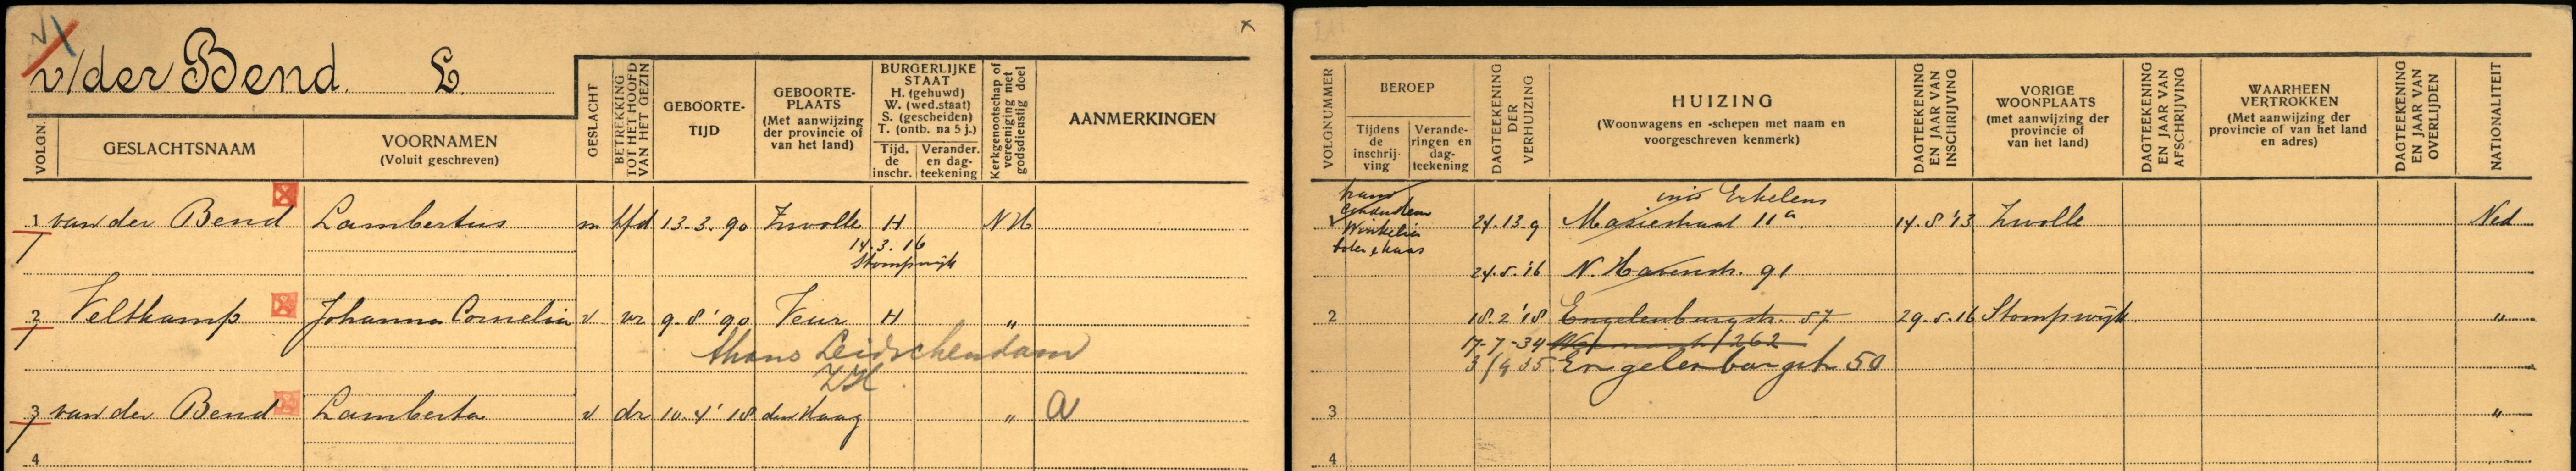 v/der Bend. L.
VOLGN.
GESLACHTSNAAM
VOORNAMEN
(Voluit geschreven)
GESLACHT
BETREKKING
TOT HET HOOFD
VAN HET GEZIN
GEBOORTE-
TIJD
GEBOORTE-
PLAATS
(Met aanwijzing
der provincie of
van het land)
BURGERLIJKE
STAAT
H. (gehuwd)
W. (wed.staat)
S. (gescheiden)
T. (ontb. na 5 j.)
Tijd.
de
inschr.
Verander.
en dag-
teekening
Kerkgenootschap of
vereeniging met
godsdienstig doel
AANMERKINGEN
1 van der Bend Lambertus m hfd 13.3.90 Zwolle H NH
14.3.16
Stompwijk
2 Veltkamp Johanna Cornelia v vr 9.8.'90 Veur H "
thans Leidschendam
ZH
3 van der Bend Lamberta v dr 10.4.'18 den Haag " a
4
VOLGNUMMER
BEROEP
Tijdens
de
inschrij-
ving
Verande-
ringen en
dag-
teekening
DAGTEEKENING
DER
VERHUIZING
HUIZING
(Woonwagens en -schepen met naam en
voorgeschreven kenmerk)
DAGTEEKENING
EN JAAR VAN
INSCHRIJVING
VORIGE
WOONPLAATS
(met aanwijzing der
provincie of
van het land)
DAGTEEKENING
EN JAAR VAN
AFSCHRIJVING
WAARHEEN
VERTROKKEN
(Met aanwijzing der
provincie of van het land
en adres)
DAGTEEKENING
EN JAAR VAN
OVERLIJDEN
NATIONALITEIT
Erkelens
1 24.13.9 Mariestraat 11a 14.8.'13 Zwolle Ned
Winkelier
boter kaas
24.5.'16 N. Havenstr. 91
2 18.2.'18 Engelenburgstr. 57 29.5.16 Stompwijk "
17-7-34 262
3/9 35 Engelenburgstr 50
3 "
4